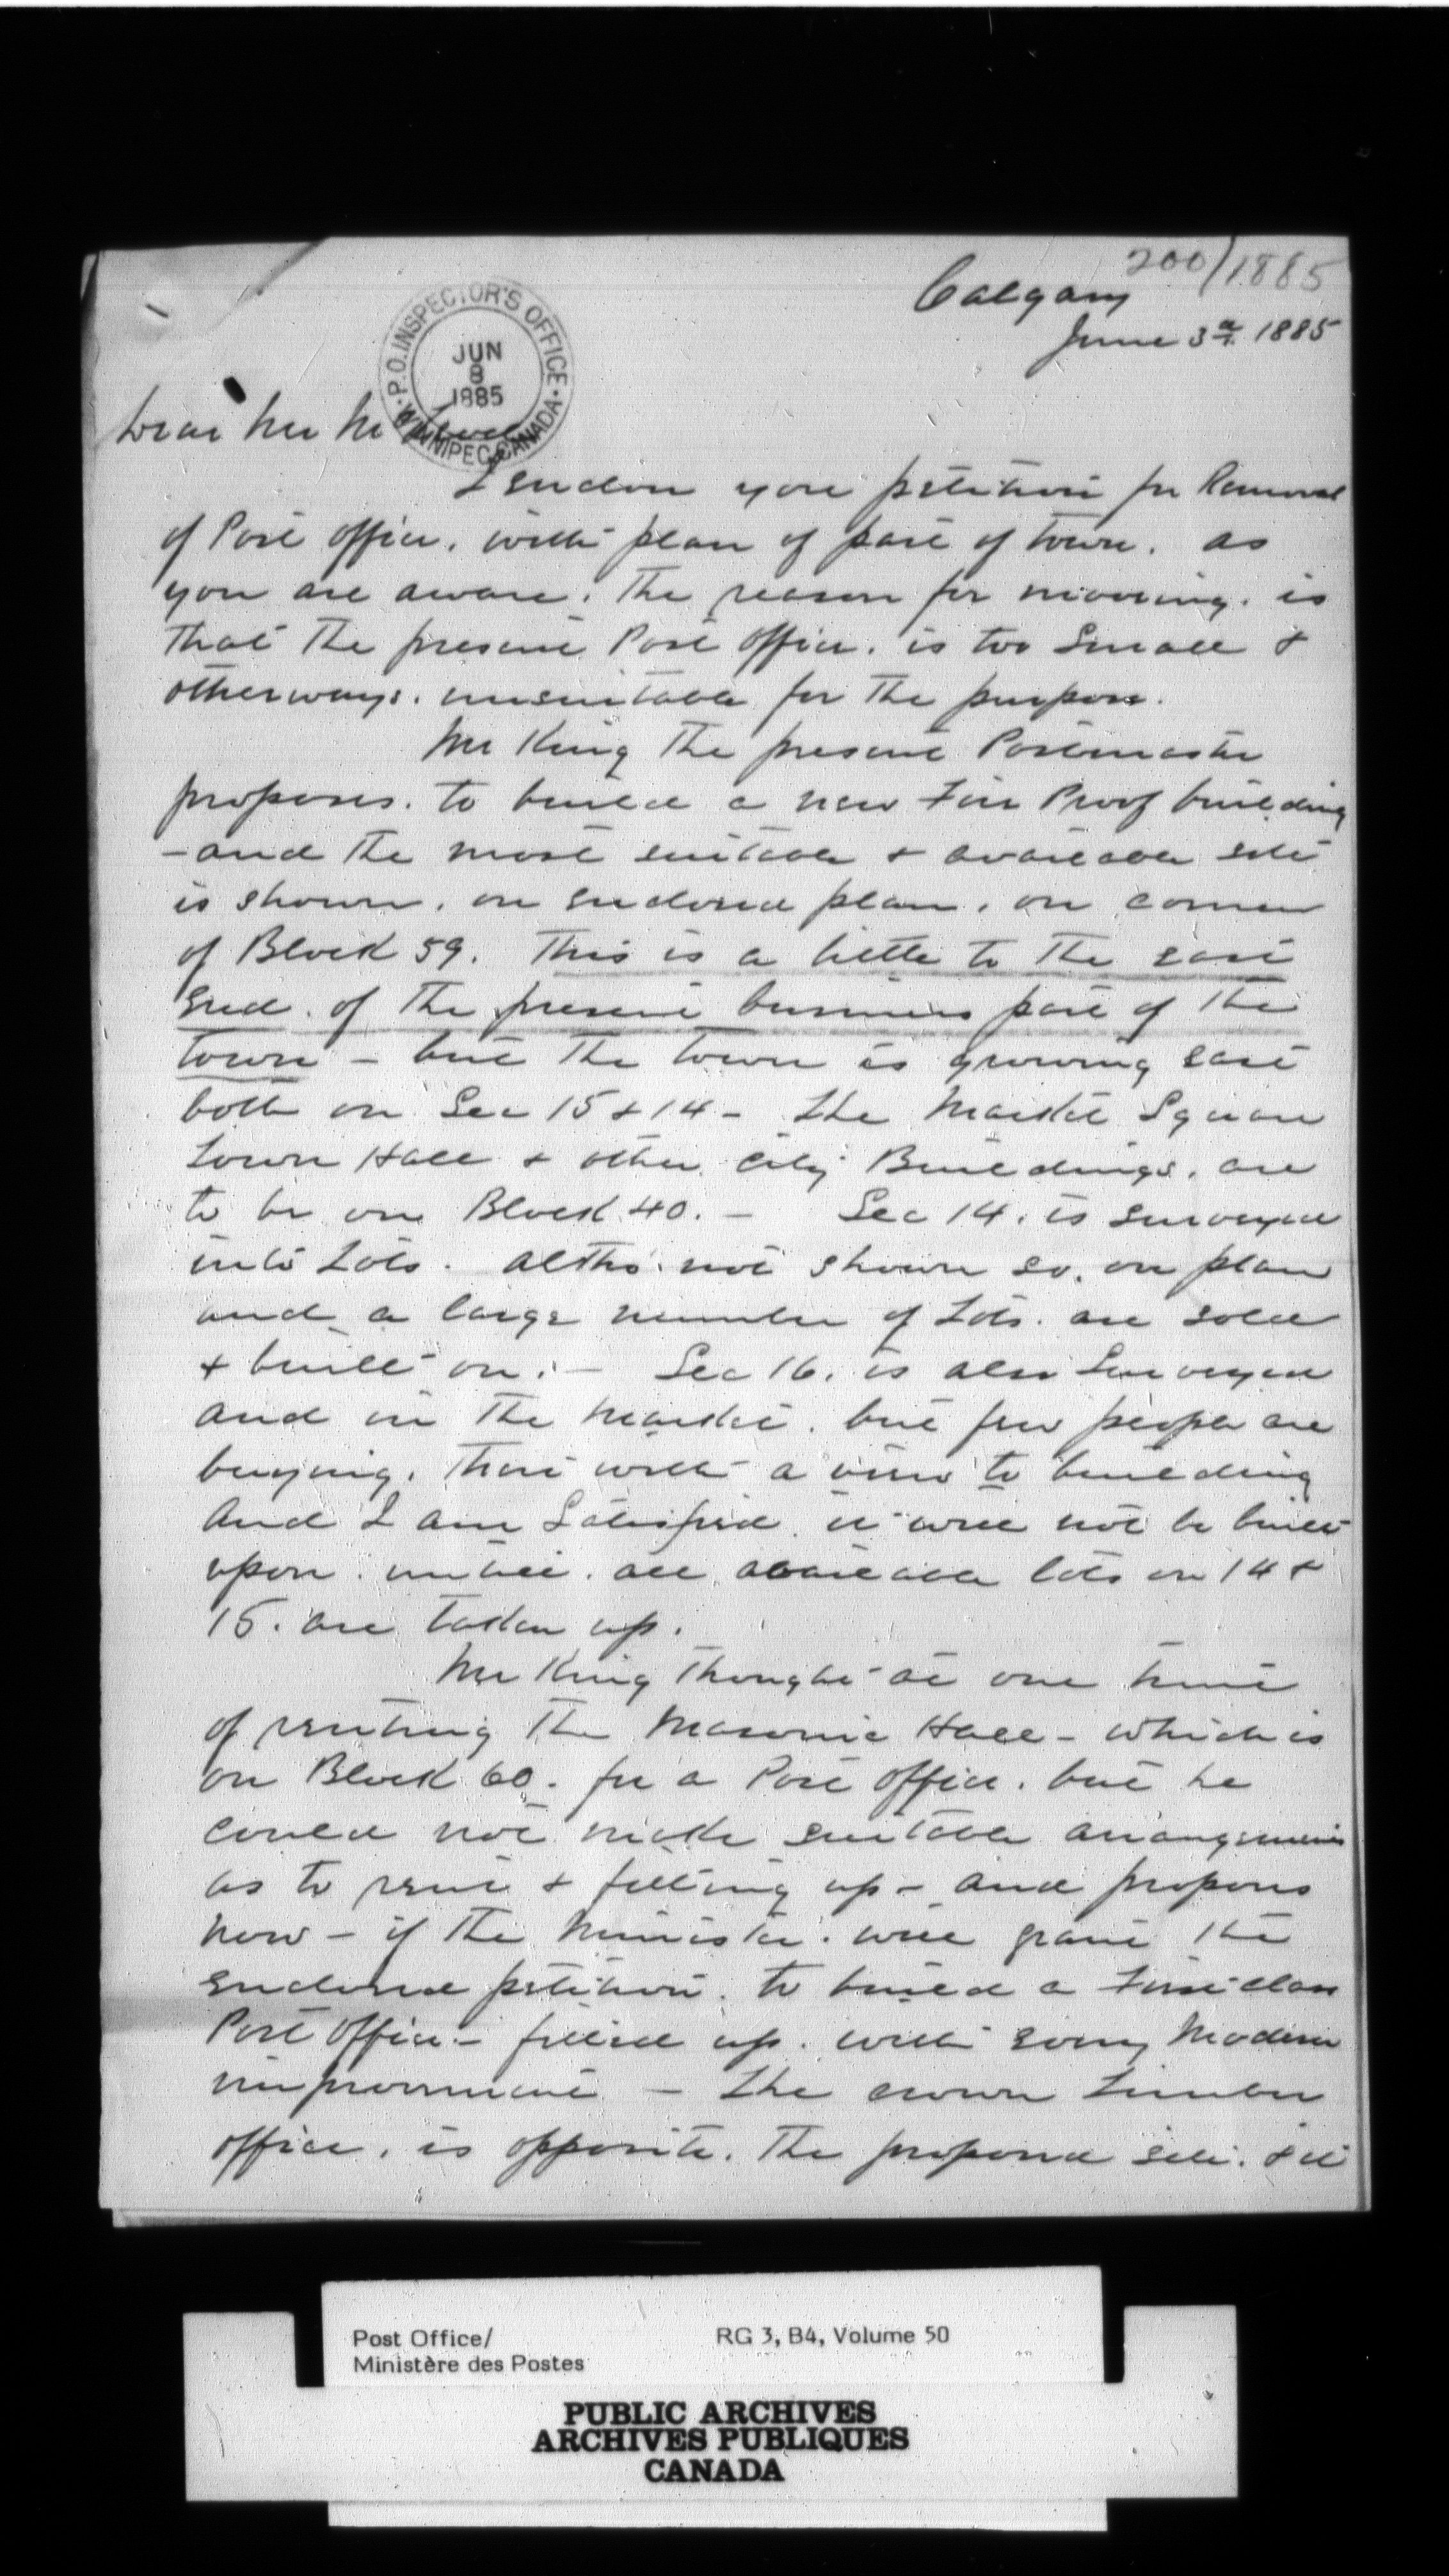 200/1885
Calgary
June 3rd 1885
P.O. INSPECTOR'S OFFICE
JUN
8
1885
WINNIPEG CANADA
Dear Mr Mc
I enclose you petition for Removal
of Post office, with plan of part of town. as
you are aware. The reason for moving. is
that the present Post office. is too small &
otherways. unsuitable for the purpose.
Mr King the present Postmaster
proposes. to build a new Fire Proof building
- and the most suitable & available site
is shown, on enclosed plan, on corner
of Block 59. This is a little to the east
end. of the present business part of the
town - but the town is growing east
both on Sec 15 & 14 - The Market Square
Town Hall & other city Buildings, are
to be on Block 40. - Sec 14. is surveyed
into Lots. altho. not shown so, on plan
and a large number of Lots. are sold
& built on. - Sec 16. is also Surveyed
and in the market. but few people are
buying. There with a view to building
And I am Satisfied. it will not be built
upon. until. all available lots on 14 &
15. are taken up.
Mr King thought at one time
of renting the Masonic Hall - which is
on Block 60. for a Post office. but he
could not make suitable arrangements
as to rent & fitting up - and proposes
now - if the Minister. will grant the
enclosed petition. to build a First class
Post office - fitted up. with every Modern
improvement - The crown Timber
office. is opposite. The proposed site. & it
Post Office/
Ministère des Postes
RG 3, B4, Volume 50
PUBLIC ARCHIVES
ARCHIVES PUBLIQUES
CANADA